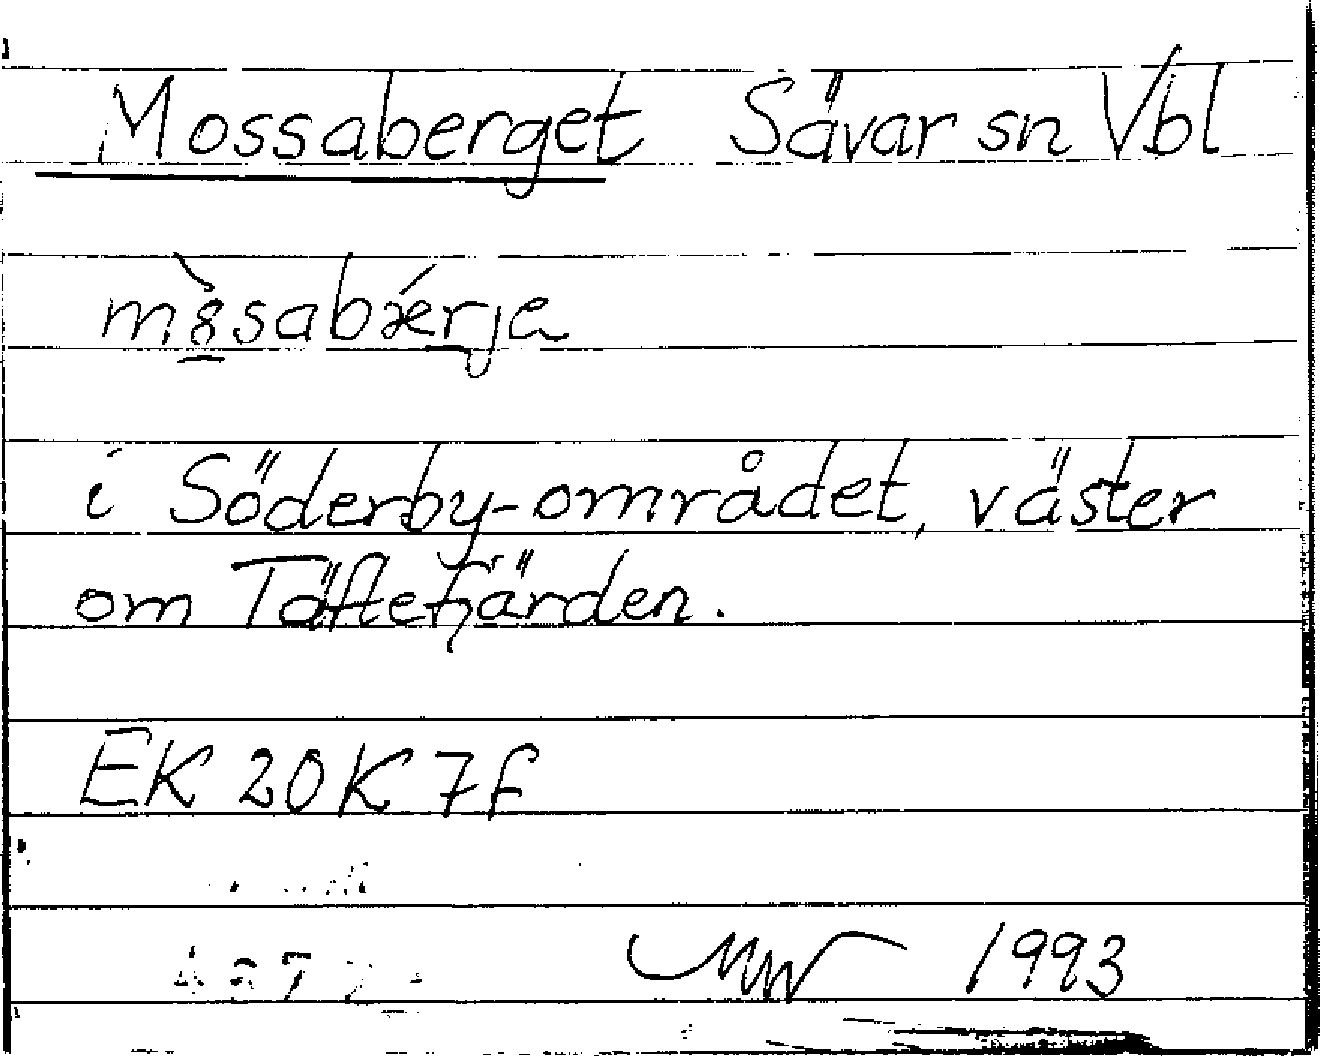 Mossaberget Sävar sn Vbl
m8̀sabǽrja
i Söderby-området, väster
om Täftefjärden.
EK 20K 7f
1993